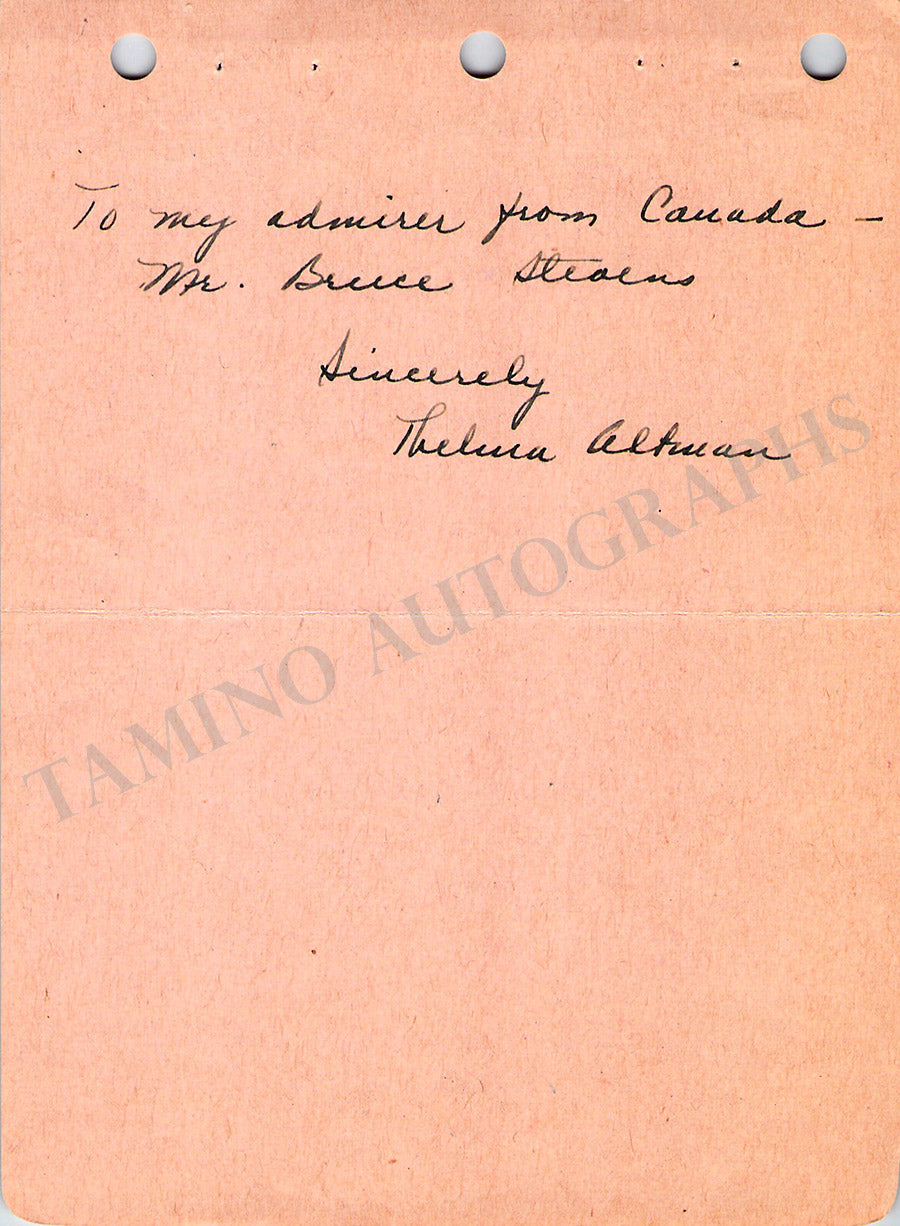 To my admirer from Canada –
Mr. Bruce Stevens
Sincerely
Thelma Altman
TAMINO AUTOGRAPHS